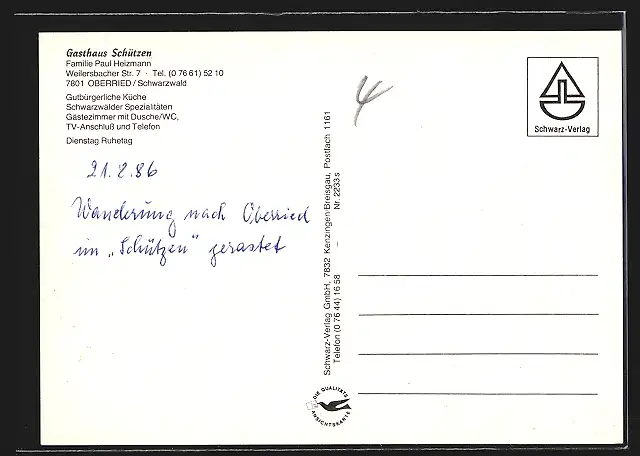 Gasthaus Schützen
Familie Paul Heizmann
Weilersbacher Str. 7 · Tel. (0 76 61) 52 10
7801 OBERRIED / Schwarzwald
Gutbürgerliche Küche
Schwarzwälder Spezialitäten
Gästezimmer mit Dusche/WC,
TV-Anschluß und Telefon
Dienstag Ruhetag
21.2.86
Wanderung nach Oberried
im „Schützen" gerastet
Schwarz-Verlag GmbH, 7832 Kenzingen/Breisgau, Postfach 1161
Telefon (0 76 44) 16 58 – Nr. 2233 s
DIE QUALITÄTS
ANSICHTSKARTE
Schwarz-Verlag